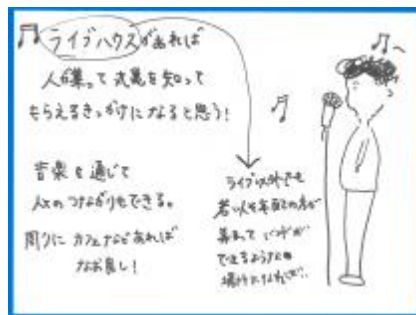 ライブハウスがあれば
人が集って 大蔵を知って
もらえるきっかけになると思う!
音楽を通じて
人とのつながりもできる。
周りにカフェなどあれば
なお良し!
ライブ以外でも
若い人や年配の方が
集まって
できるような
場所になれば…